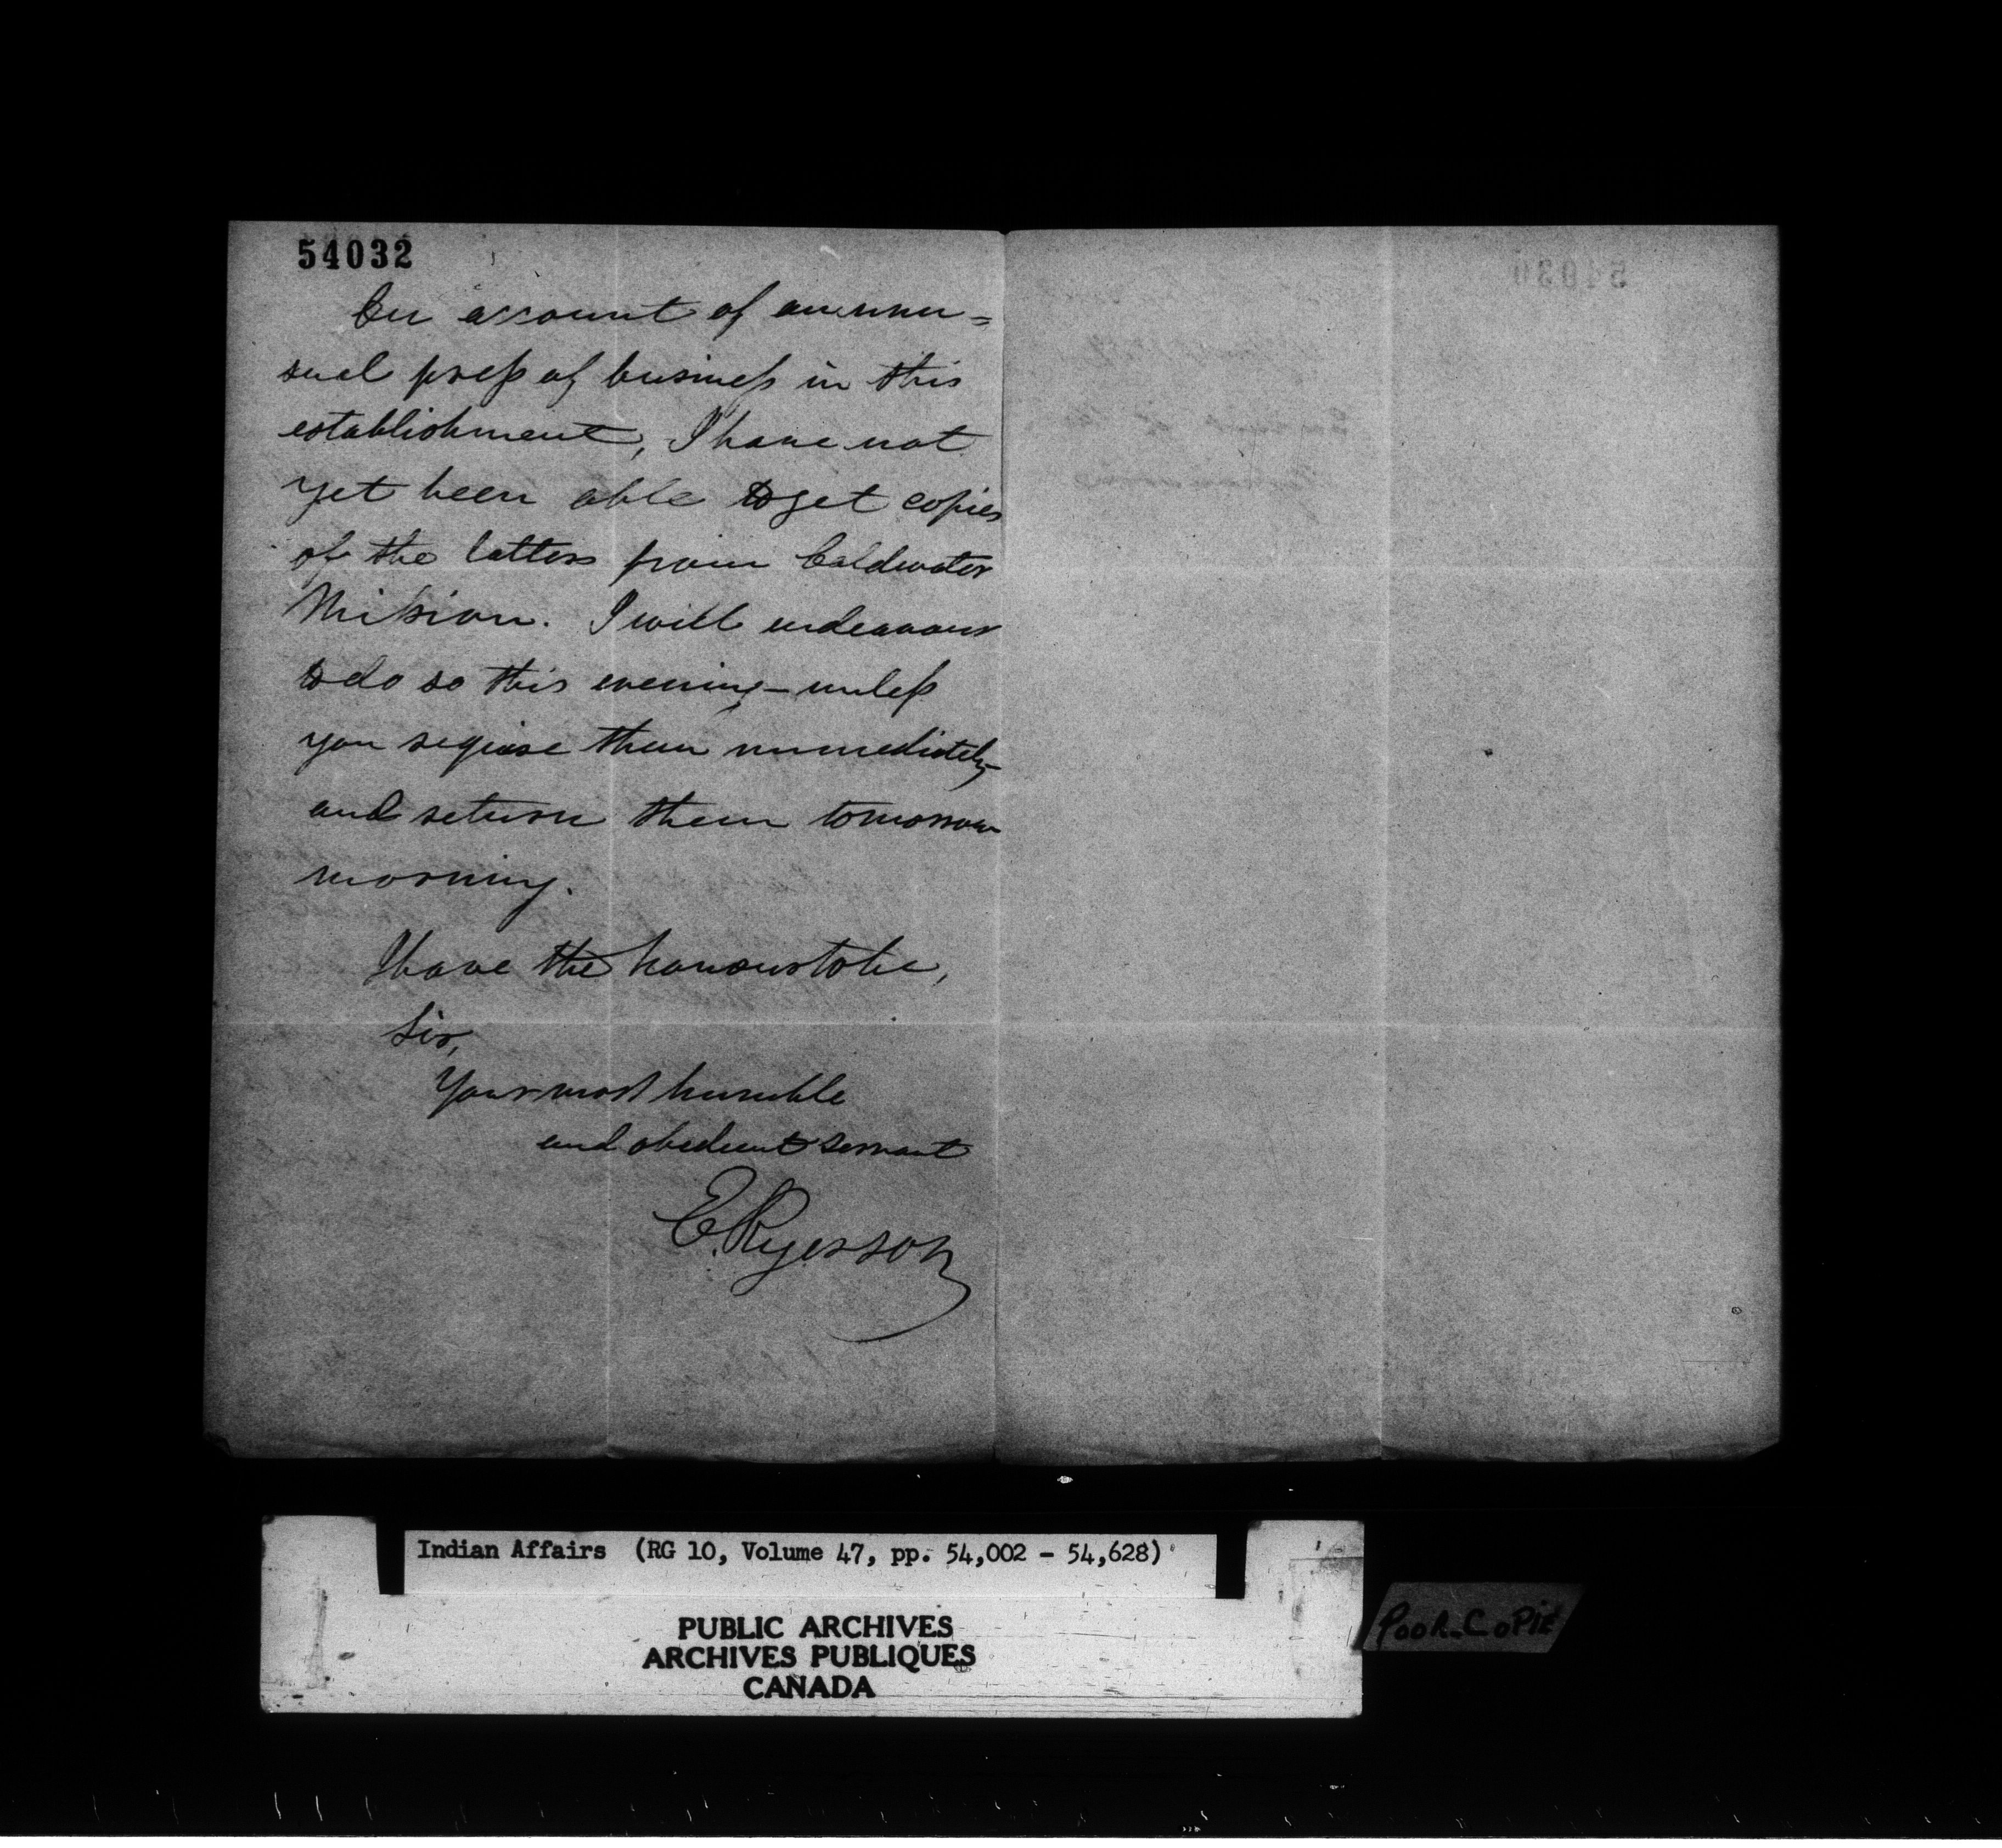 54032
On account of an unu=
sual press of business in this
establishment, I have not
yet been able to get copies
of the letters from Coldwater
Mission. I will endeavour
to do so this evening – unless
you require them immediately –
and return them tomorrow
morning.
I have the honour to be,
Sir,
Your most humble
and obedient servant
E. Ryerson
Indian Affairs (RG 10, Volume 47, pp. 54,002 - 54,628)
PUBLIC ARCHIVES
ARCHIVES PUBLIQUES
CANADA
POOR COPIE